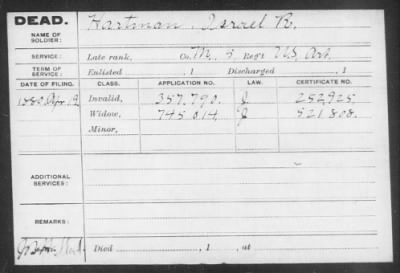 DEAD.
NAME OF SOLDIER: Hartman, Israel R.
SERVICE: Late rank, Co. M, 5, Regt US Art.
TERM OF SERVICE: Enlisted , 1 Discharged , 1
DATE OF FILING. CLASS. APPLICATION NO. LAW. CERTIFICATE NO.
1880 Apr. Invalid, 357.790. 252,925.
Widow, 745.014, 521808.
Minor,
ADDITIONAL SERVICES:
REMARKS:
Died , 1 , at